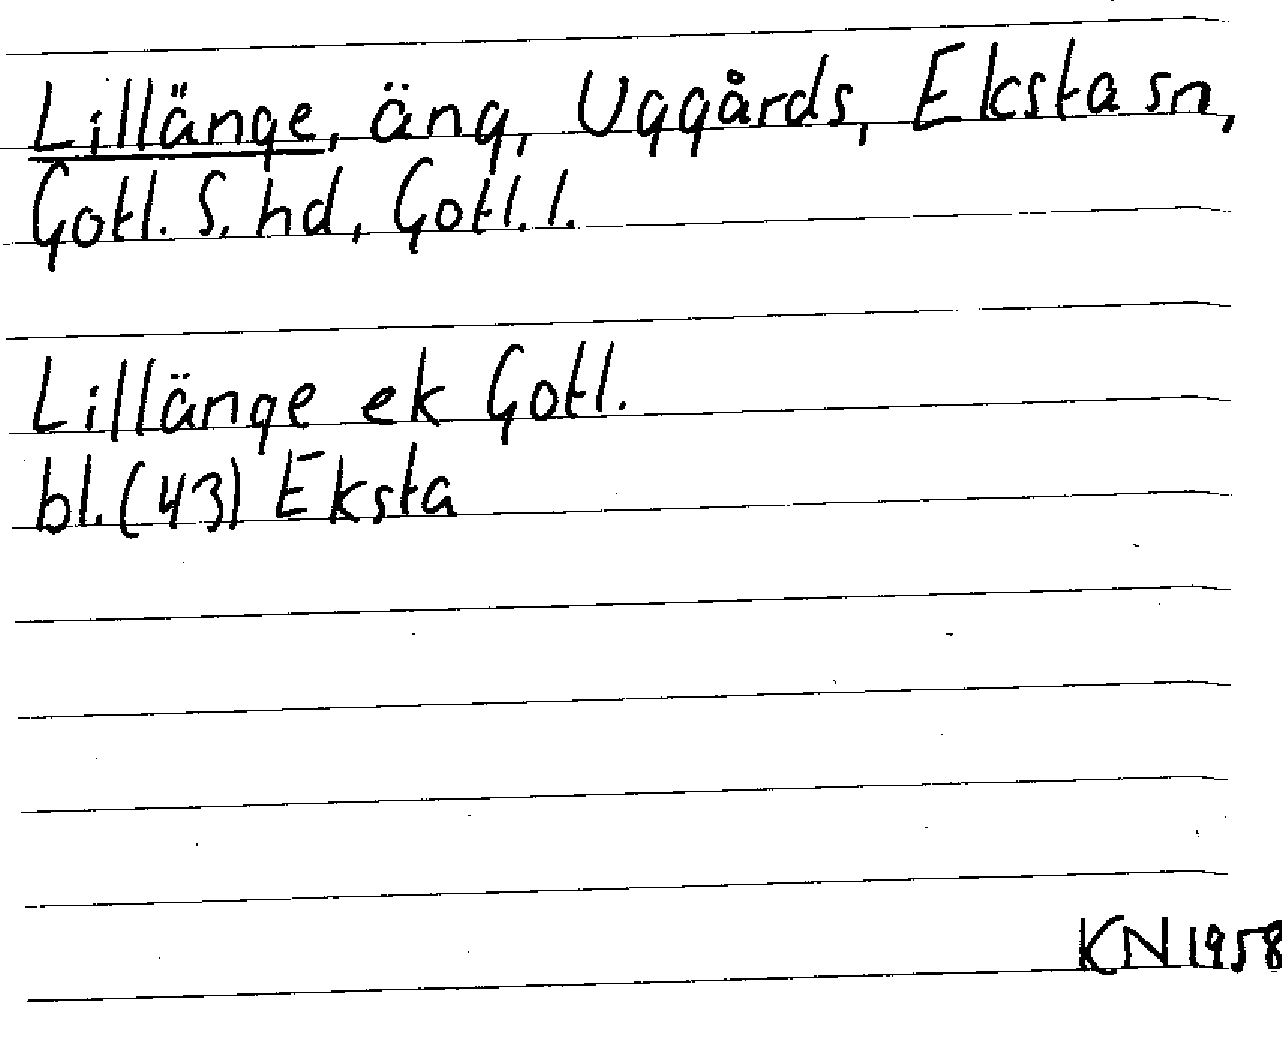 Lillänge, äng, Uggårds, Eksta sn,
Gotl. S. hd, Gotl. l.
Lillänge ek Gotl.
bl. (43) Eksta
KN 1958